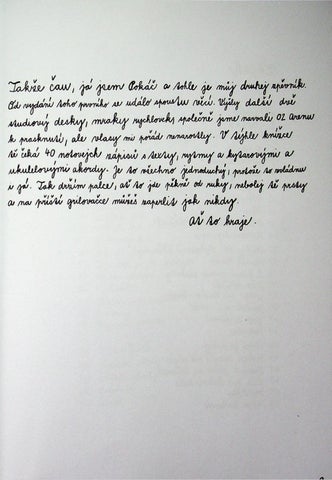 Takže čau, já jsem Pokáč a tohle je můj druhej zpěvník.
Od vydání toho prvního se událo spoustu věcí. Vyšly další dvě
studiový desky, mraky rychlovek, společně jsme narvali O2 arenu
k prasknutí, ale vlasy mi pořád nenarostly. V týhle knížce
tě čeká 40 notovejch zápisů s texty, rytmy a kytarovými a
ukulelovými akordy. Je to všechno jednoduchý, protože to zvládnu
i já. Tak držím palce, ať to jde pěkně od ruky, nebolej tě prsty
a na příští grilovačce můžeš zaperlit jak nikdy.
Ať to hraje.